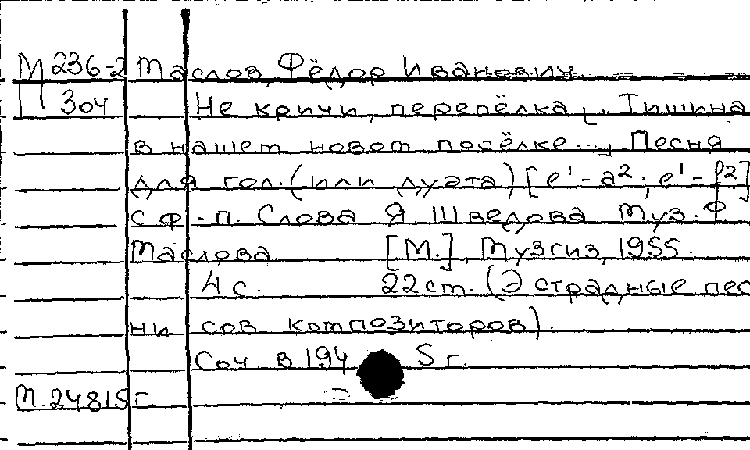 М 236-2 Маслов, Фёдор Иванович.
П 304 Не кричи, перепёлка [Тишина
в нашем новом посёлке...] Песня
для гол. (или дуэта) [e¹-a²; e¹-f²]
с ф.-п. Слова Я. Шведова Муз. Ф.
Маслова [М.], Музгиз, 1955.
4 с. 22 см. (Эстрадные пес
ни сов композиторов).
Соч в 194 5 г.
М. 24815г